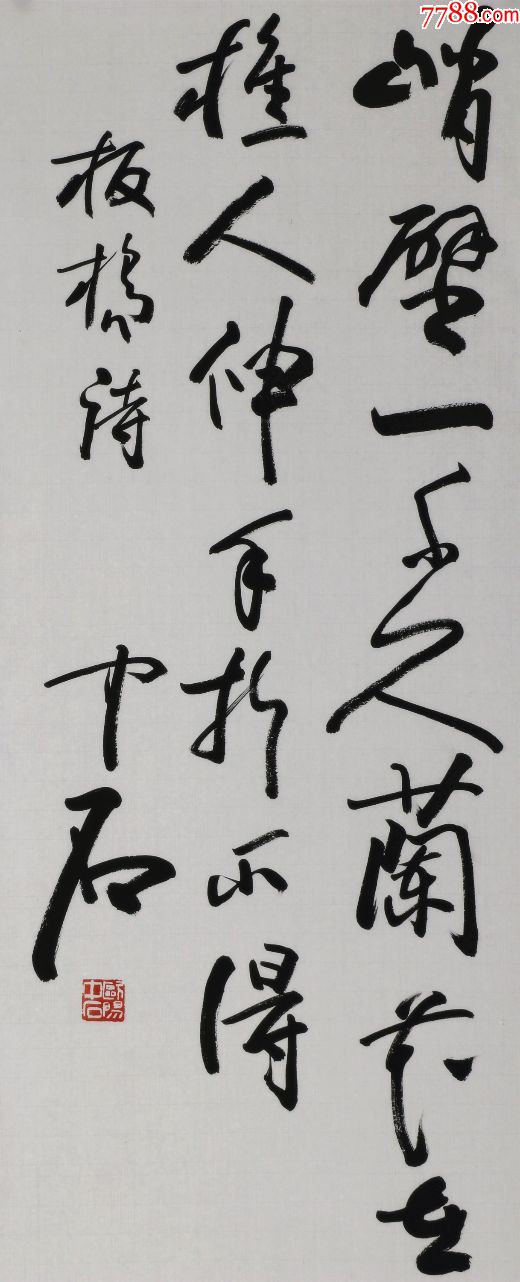 7788.com
峭壁一千尺蘭花在
樵人伸手折不得
板橋詩
中石
歐陽中石